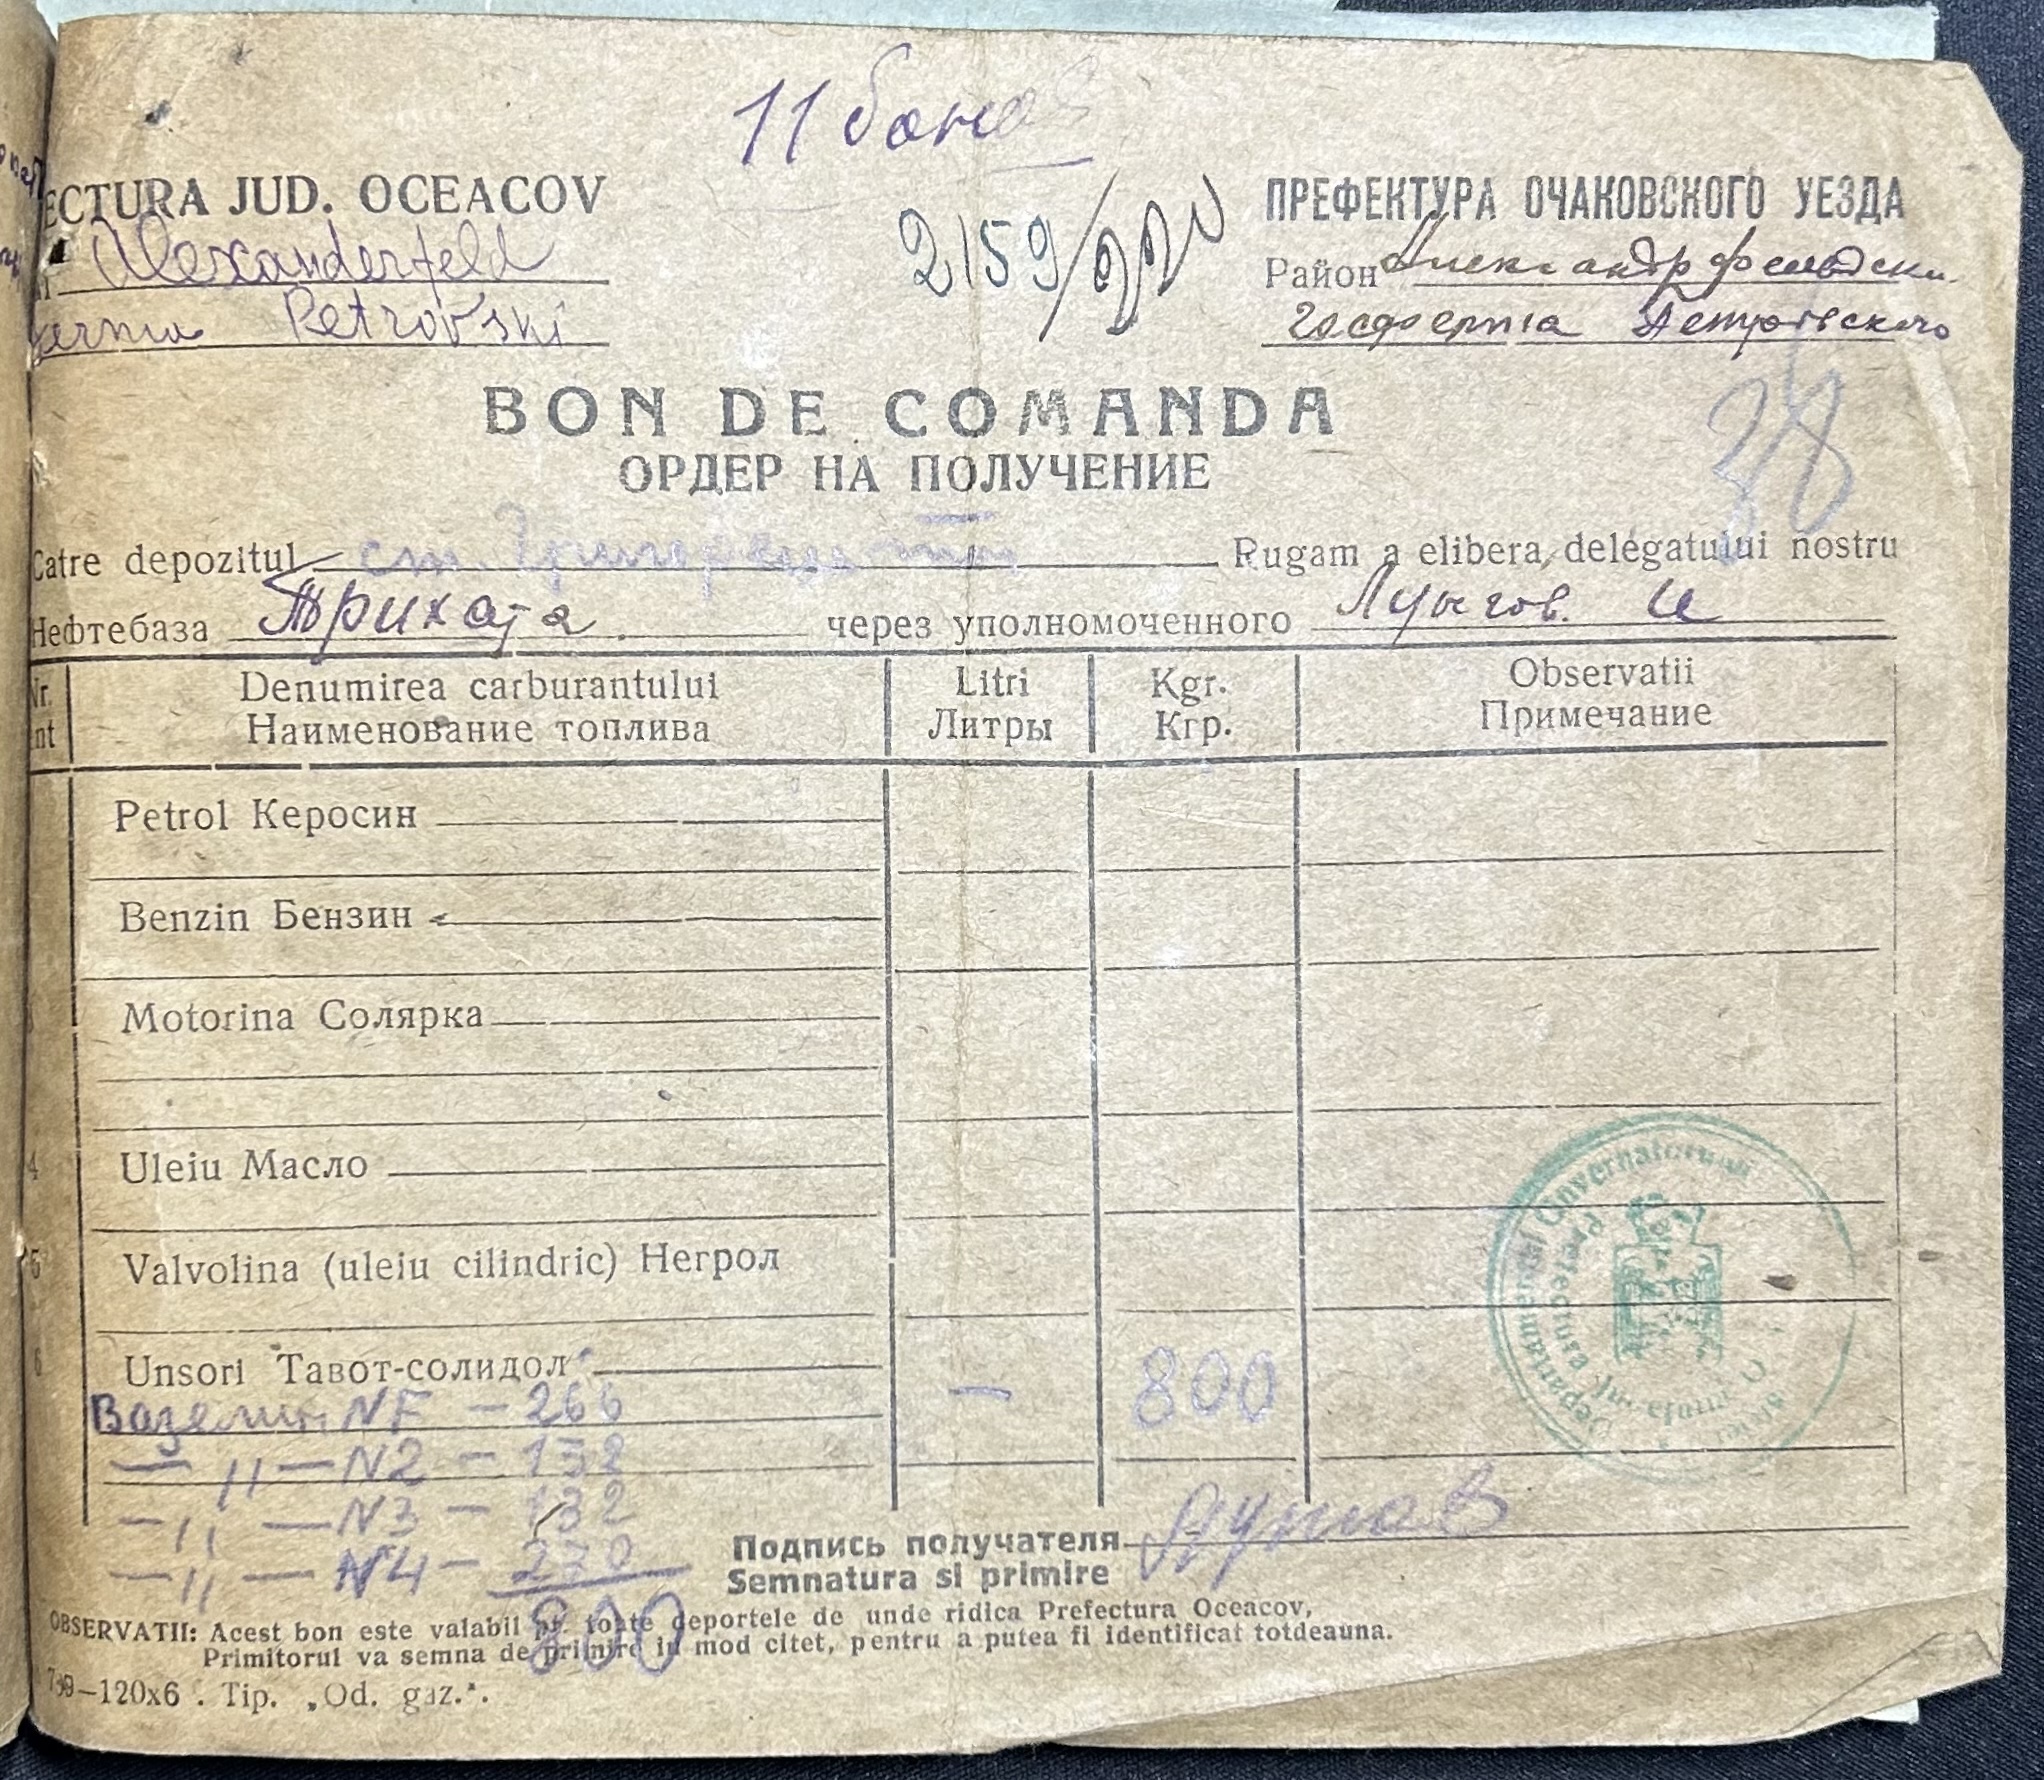 11
ECTURA JUD. OCEACOV
ПРЕФЕКТУРА ОЧАКОВСКОГО УЕЗДА
2159/
Alexanderfeld
Район Александрфельдски
Petrovski
Госферма Петровского
BON DE COMANDA
ОРДЕР НА ПОЛУЧЕНИЕ
38
Catre depozitul ст. Rugam a elibera delegatului nostru
Нефтебаза Трихата. через уполномоченного
Nr. Denumirea carburantului Litri Kgr. Observatii
nt Наименование топлива Литры Кгр. Примечание
Petrol Керосин
Benzin Бензин
Motorina Солярка
4 Uleiu Масло
5 Valvolina (uleiu cilindric) Негрол
6 Unsori Тавот-солидол
Вазелин NF - 266 — 800
— " — N2 - 132
— " — N3 - 132
— " — N4 - 270
800
Guvernatorului
Подпись получателя
Semnatura si primire
OBSERVATII: Acest bon este valabil pt. toate deportele de unde ridica Prefectura Oceacov,
Primitorul va semna de primire in mod citet, pentru a putea fi identificat totdeauna.
—120x6. Tip. „Od. gaz.".